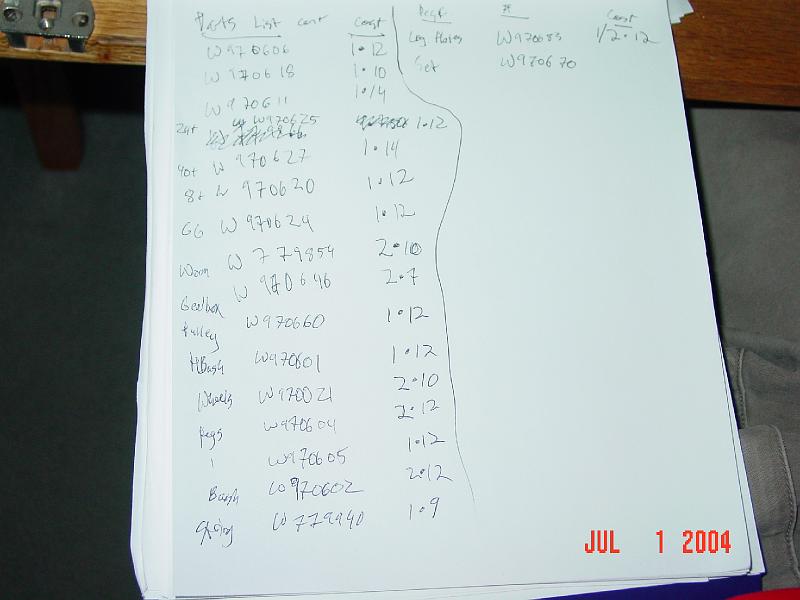 Parts List cont Cost
W970606 1.12
W970618 1.10
W970611 1.14
24t W970625 1.12
40t W970627 1.14
8t W970620 1.12
GG W970624 1.12
Worm W779854 2.10
W970646 2.7
Gearbox
Pulley W970660 1.12
HBush W970601 1.12
Wheels W970021 2.10
Pegs W970604 2.12
W970605 1.12
Bush W970602 2.12
W779940 1.9
# Cost
Leg Plates W970683 1/2.12
Set W970670
JUL 1 2004